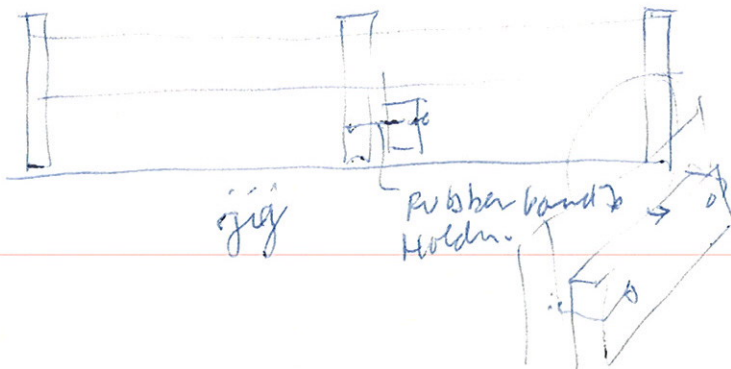 jig
Rubber band to
Hold